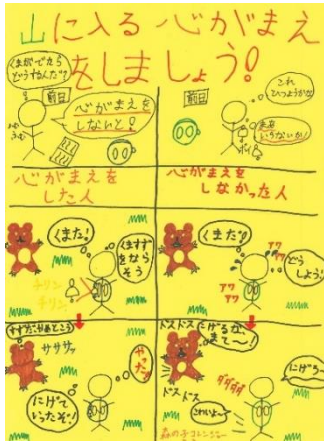 山に入る心がまえ
をしましょう!
くまがでたら
どうするんだ?
前日
心がまえを
しないと!
前日
これ
ひつようかな
まあ
いらないか!
ポイ
心がまえを
した人
心がまえを
しなかった人
くまだ!
くますず
をならそう
チリン
チリン
くまだ!!
どう
しよう!
アワ
アワ
アワ
ササササッ
やった!!
にげて
いったぞ!
ドスドス
にげるか
まて〜!
ダダダダ
にげろ〜
ドス
ドス
こわいよ〜
森の子コレンジャー